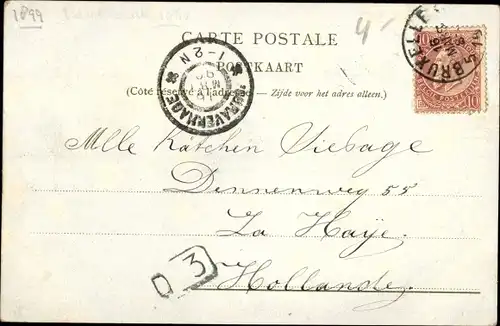 1899
4-
CARTE POSTALE
POSTKAART
(Côté réservé à l'adresse) — Zijde voor het adres alleen.
'S GRAVENHAGE
1-2N
BRUXELLES
10 10
Mlle Kätchen Siebage
Dennenweg 55
La Haye
Hollande.
D 3